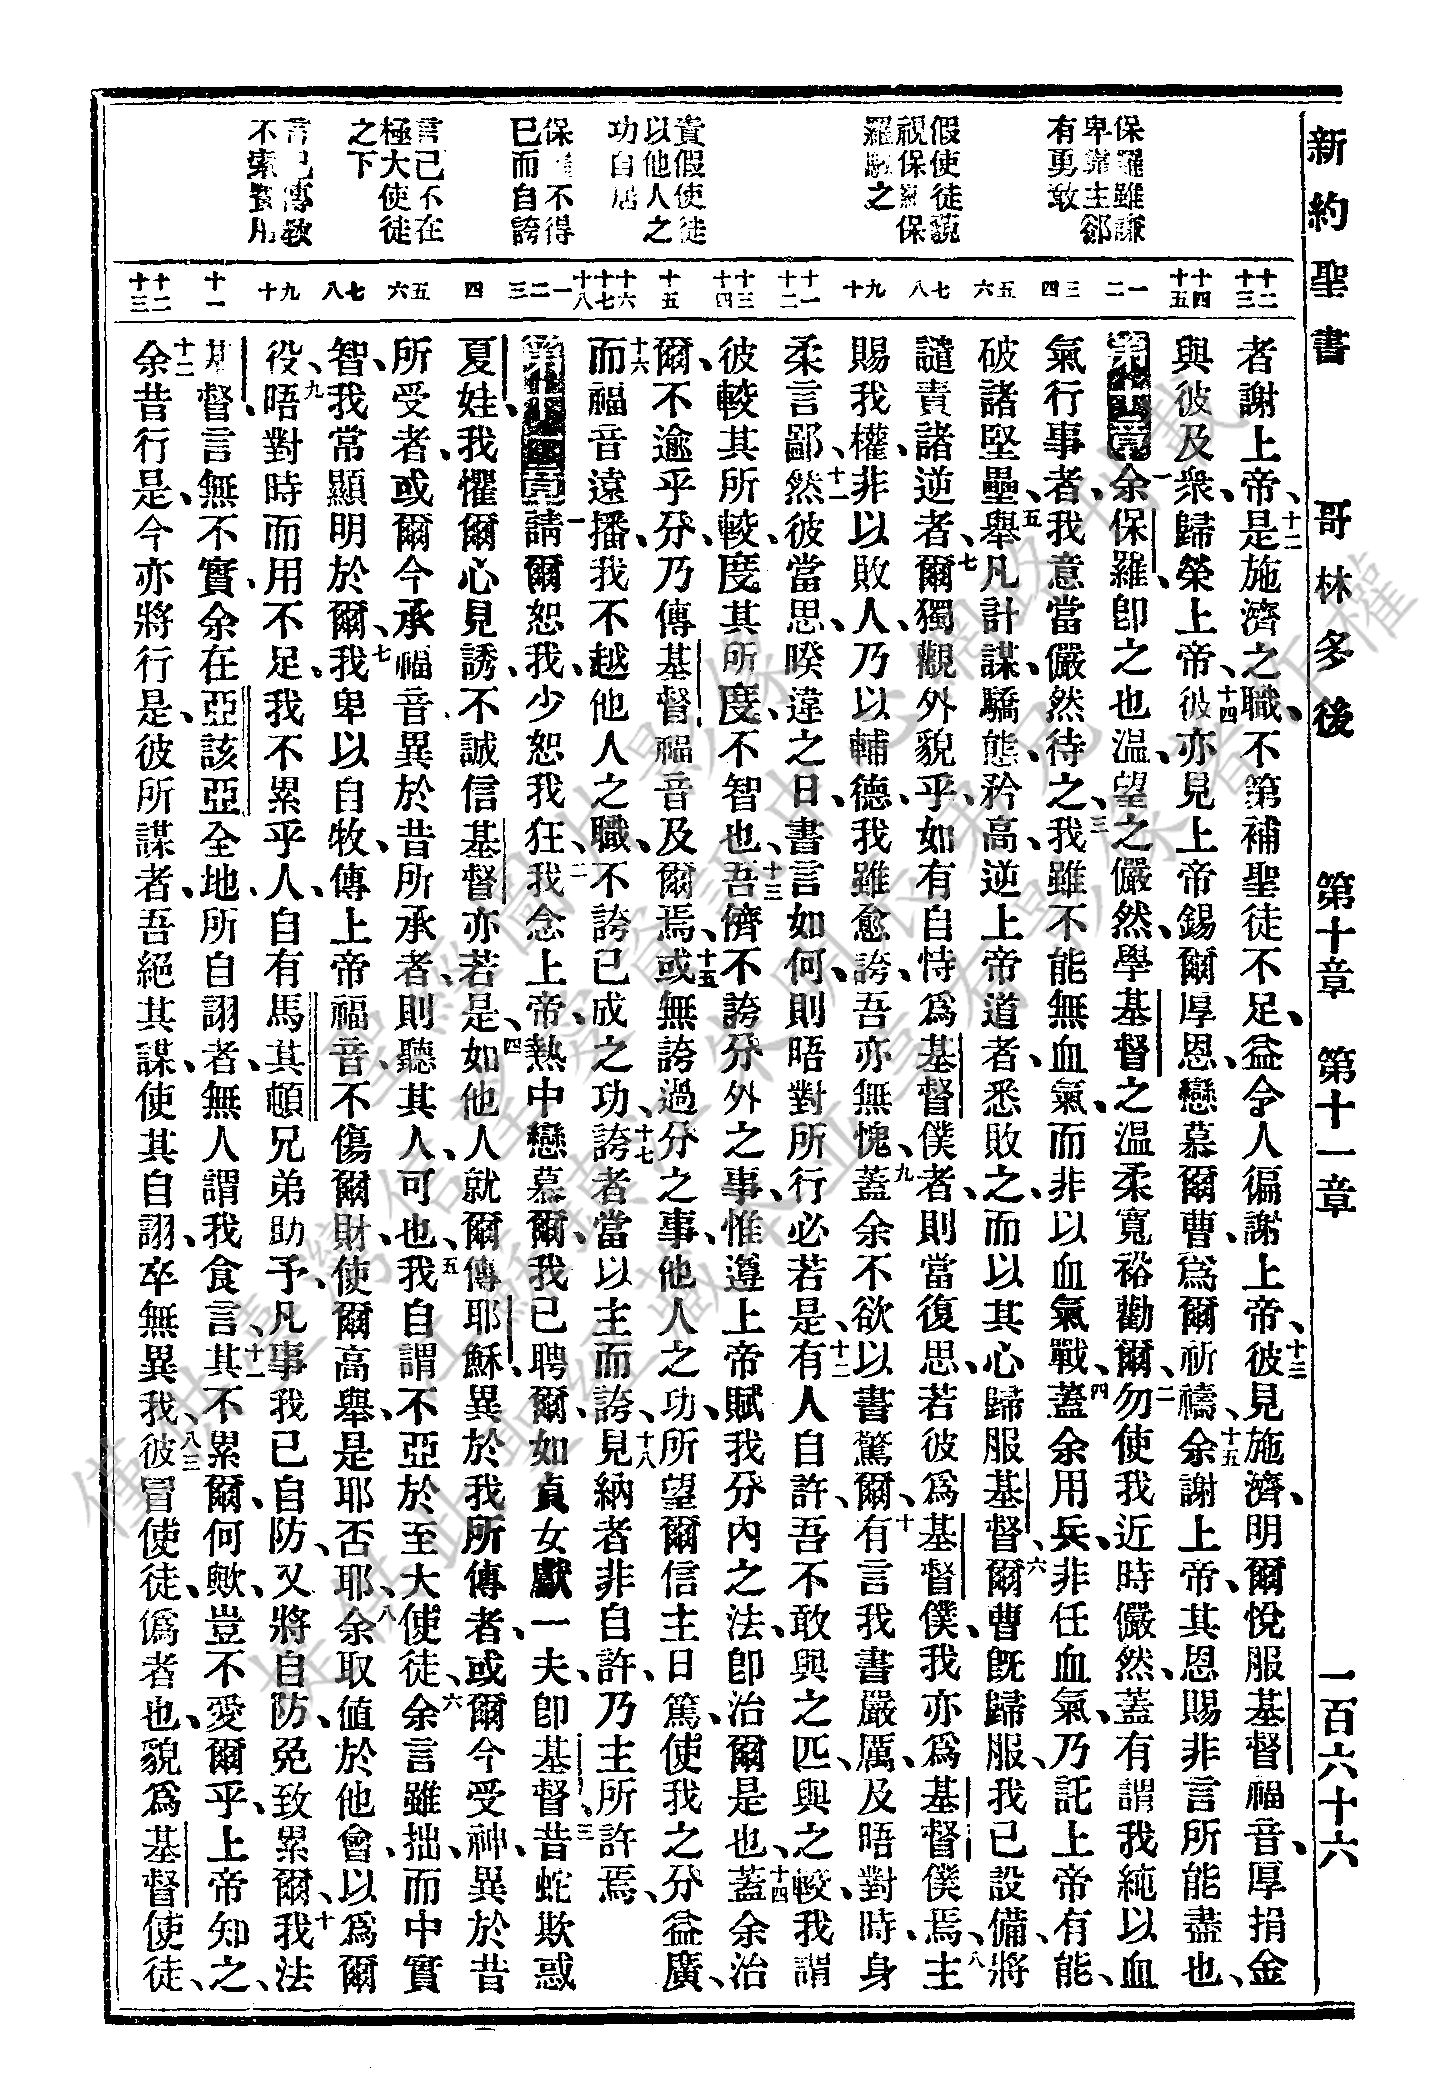 新約聖書 哥林多後 第十章 第十一章 一百六十六
保羅雖謙
卑靠主卻
有勇敢
假使徒藐
視保羅保
羅駁之
責假使徒
以他人之
功自居
保 不得
已而自誇
言己不在
極大使徒
之下
言己傳教
不索費用
十二 十三
十四 十五
一 二
三 四
五 六
七 八
九 十
十一 十二
十三 十四
十五
十六 十七 十八
一 二 三
四
五 六
七 八
九 十
十一
十二 十三
者謝上帝、十二是施濟之職、不第補聖徒不足、益令人徧謝上帝、十三彼見施濟、明爾悅服基督福音、厚捐金
與彼及衆、歸榮上帝、十四彼亦見上帝錫爾厚恩、戀慕爾曹、爲爾祈禱、十五余謝上帝、其恩賜非言所能盡也、
第十章一余保羅、卽之也温、望之儼然、學基督之温柔寬裕勸爾、二勿使我近時儼然、蓋有謂我純以血
氣行事者、我意當儼然待之、三我雖不能無血氣、而非以血氣戰、四蓋余用兵、非任血氣、乃託上帝有能、
破諸堅壘、五舉凡計謀驕態、矜高逆上帝道者、悉敗之、而以其心歸服基督、六爾曹旣歸服、我已設備、將
譴責諸逆者、七爾獨觀外貌乎、如有自恃爲基督僕者、則當復思、若彼爲基督僕、我亦爲基督僕焉、八主
賜我權、非以敗人、乃以輔德、我雖愈誇、吾亦無愧、九蓋余不欲以書驚爾、十有言我書嚴厲、及晤對時、身
柔言鄙、十一然彼當思、暌違之日、書言如何、則晤對所行必若是、十二有人自許、吾不敢與之匹、與之較、我謂
彼較其所較、度其所度、不智也、十三吾儕不誇分外之事、惟遵上帝賦我分內之法、卽治爾是也、十四蓋余治
爾、不逾乎分、乃傳基督福音及爾焉、十五或無誇過分之事、他人之功、所望爾信主日篤、使我之分益廣、
十六而福音遠播、我不越他人之職、不誇已成之功、十七誇者當以主而誇、十八見納者非自許、乃主所許焉、
第十一章一請爾恕我、少恕我狂、二我念上帝、熱中戀慕爾、我已聘爾、如貞女獻一夫、卽基督、三昔蛇欺惑
夏娃、我懼爾心見誘、不誠信基督、亦若是、四如他人就爾傳耶穌、異於我所傳者、或爾今受神、異於昔
所受者、或爾今承福音異於昔所承者、則聽其人可也、五我自謂不亞於至大使徒、六余言雖拙、而中實
智、我常顯明於爾、七我卑以自牧、傳上帝福音、不傷爾財、使爾高舉、是耶否耶、八余取値於他會、以爲爾
役、九晤對時而用不足、我不累乎人、自有馬其頓兄弟助予、凡事我已自防、又將自防、免致累爾、十我法
基督言無不實、余在亞該亞全地、所自詡者、無人謂我食言、十一其不累爾、何歟、豈不愛爾乎、上帝知之、
十二余昔行是、今亦將行是、彼所謀者、吾絕其謀、使其自詡、卒無異我、十三彼冒使徒、僞者也、貌爲基督使徒、